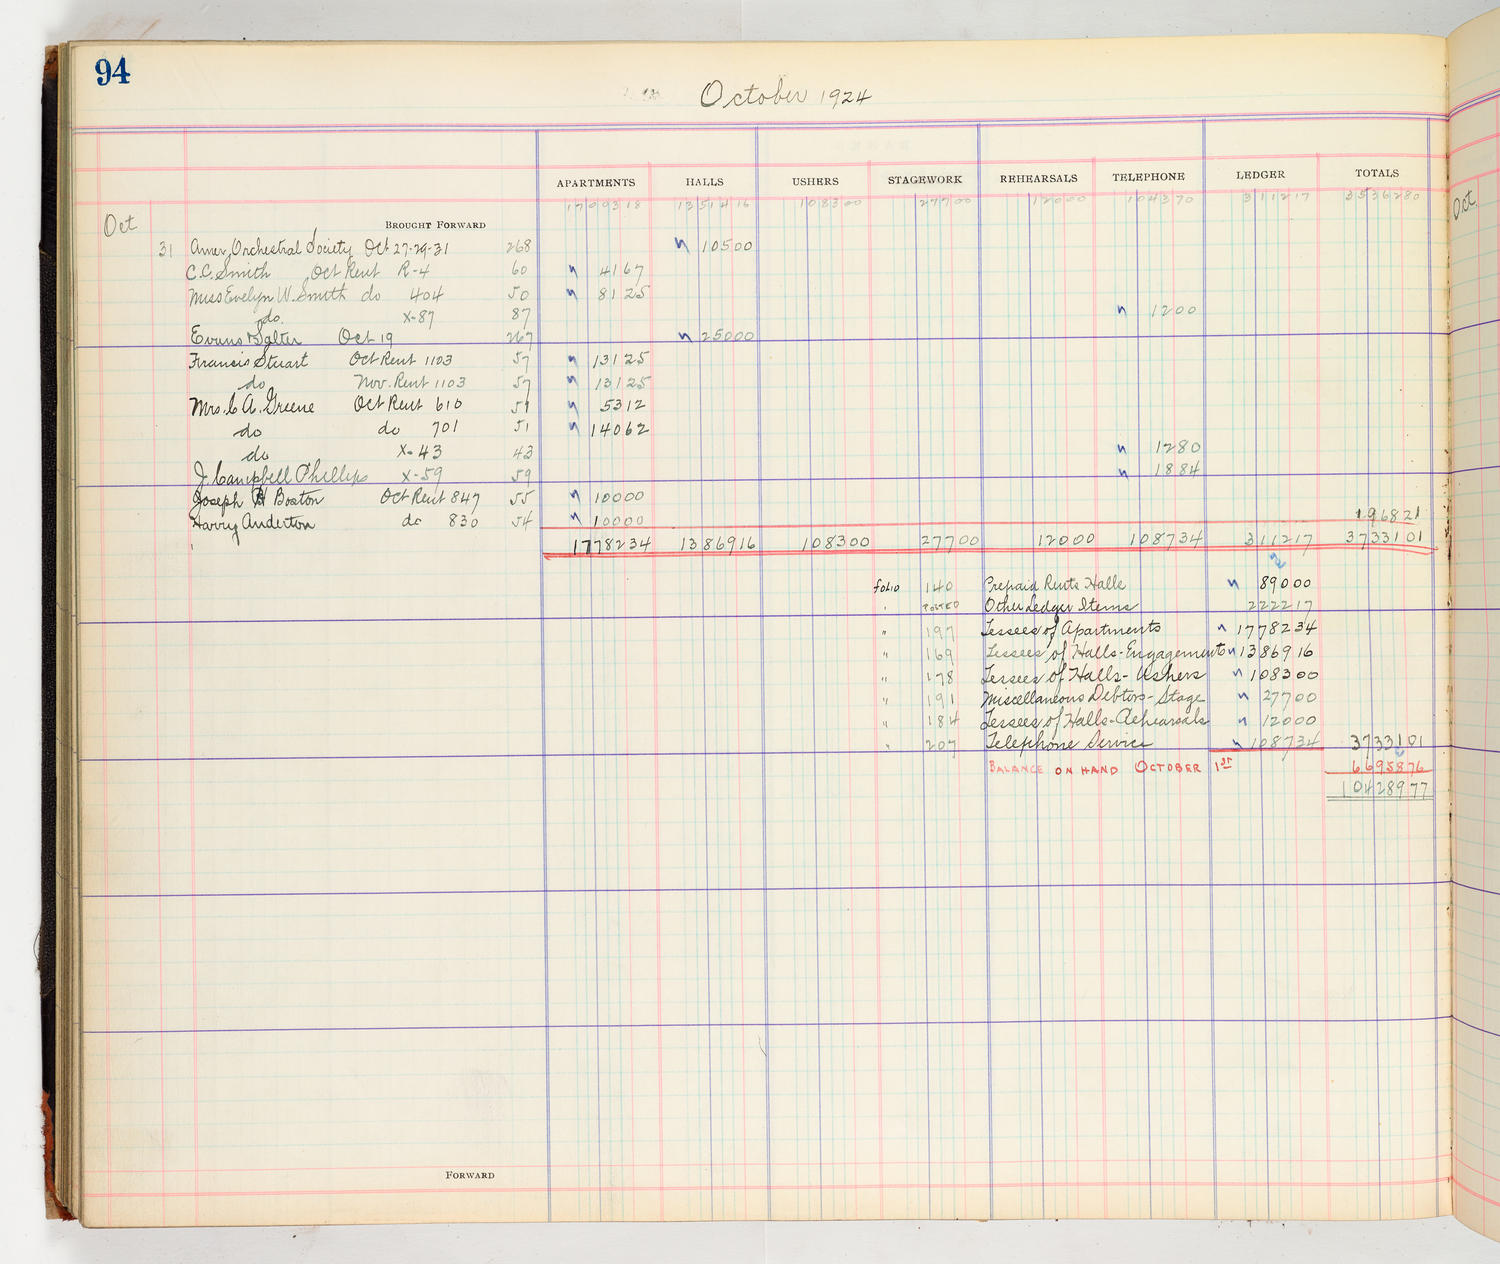 94
October 1924
APARTMENTS HALLS USHERS STAGEWORK REHEARSALS TELEPHONE LEDGER TOTALS
Oct BROUGHT FORWARD 1709318 1351416 108300 27700 12000 104370 311217 3536280 Oct
31 Amer. Orchestral Society Oct 27-29-31 268 10500
C.C. Smith Oct Rent R-4 60 4167
Miss Evelyn W. Smith do 404 50 8125
do. X-87 87 1200
Evans & Salter Oct 19 267 25000
Francis Stuart Oct Rent 1103 57 13125
do Nov. Rent 1103 57 13125
Mrs. C A. Greene Oct Rent 610 51 5312
do do 701 51 14062
do X-43 43 1280
J. Campbell Phillips X-59 59 1884
Joseph H Boston Oct Rent 847 55 10000
Harry Anderton do 830 54 10000 196821
1778234 1386916 108300 27700 12000 108734 311217 3733101
folio 140 Prepaid Rents Halls 89000
" POSTED Other Ledger Items 222217
" 197 Lessees of Apartments 1778234
" 169 Lessees of Halls-Engagements 1386916
" 178 Lessees of Halls-Ushers 108300
" 191 Miscellaneous Debtors-Stage 27700
" 184 Lessees of Halls-Rehearsals 12000
" 207 Telephone Service 108734 3733101
BALANCE ON HAND OCTOBER 1ST 6695876
10428977
FORWARD